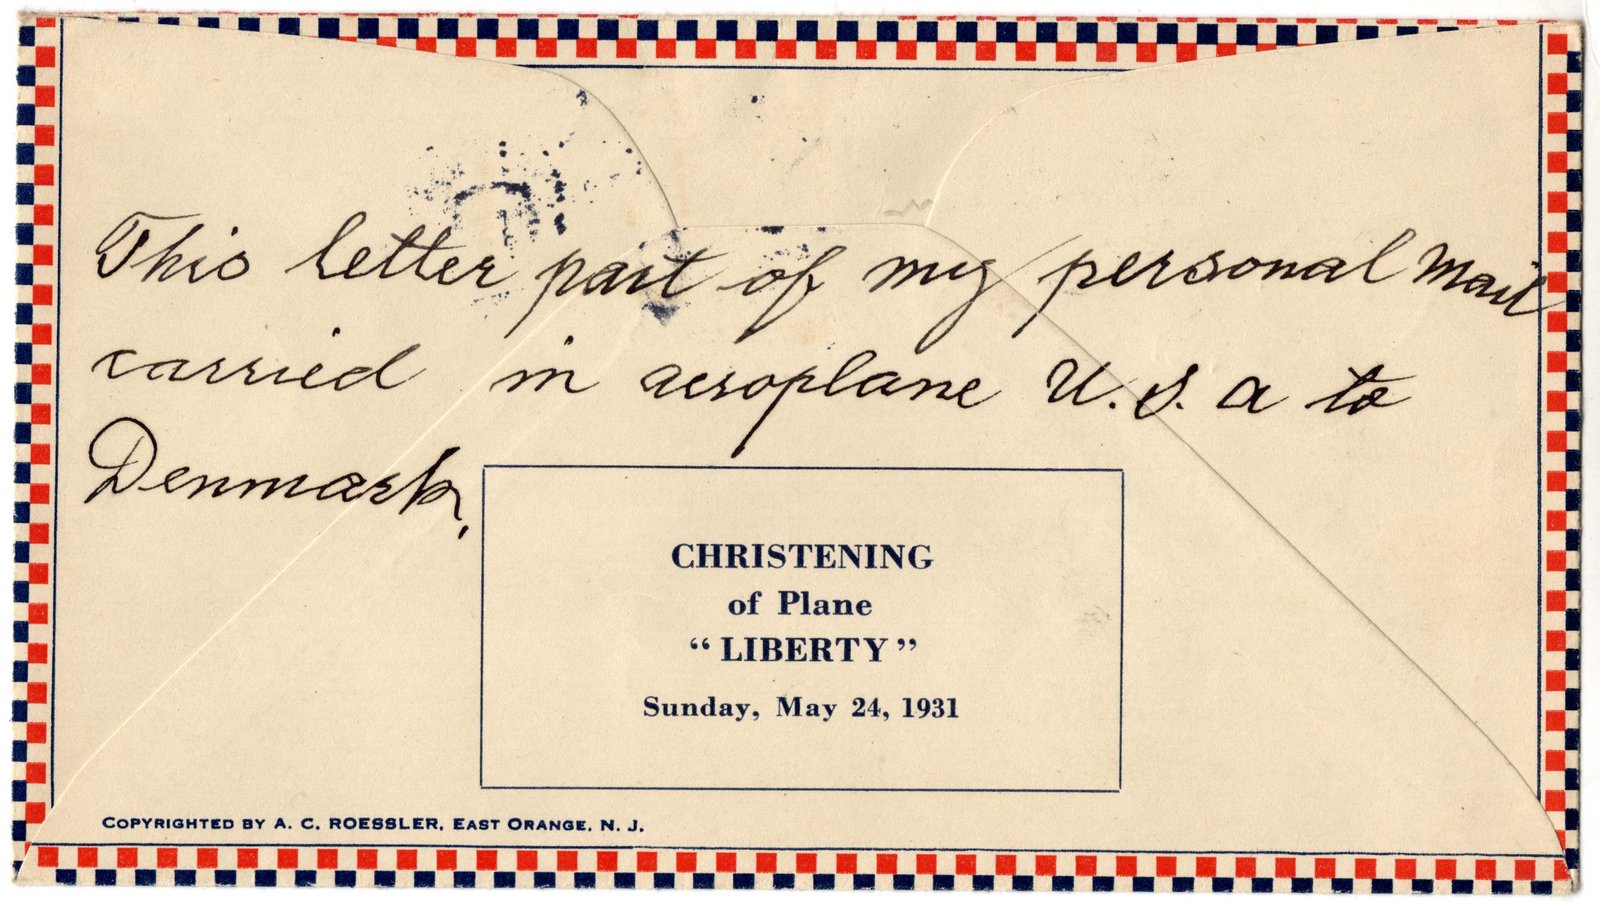 This letter part of my personal Mail
carried in aeroplane U.S.a to
Denmark,
CHRISTENING
of Plane
“LIBERTY”
Sunday, May 24, 1931
COPYRIGHTED BY A. C. ROESSLER, EAST ORANGE, N. J.